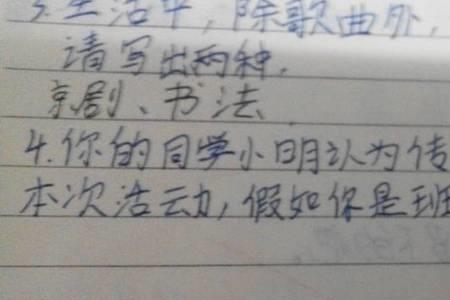 3.生活中,除歌曲外,
请写出两种.
京剧、书法
4.你的同学小明认为传
本次活动,假如你是班